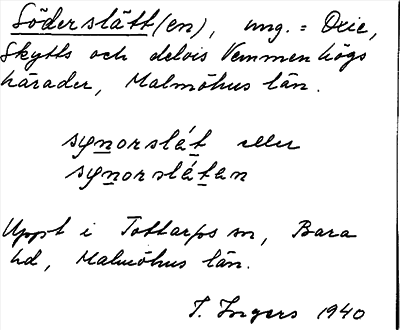 Söderslätt(en), ung. = Oxie,
Skytts och delvis Vemmenhögs
härader, Malmöhus län.
synorslát eller
synorslátan
Uppt i Tottarps sn, Bara
hd, Malmöhus län.
T. Ingers 1940